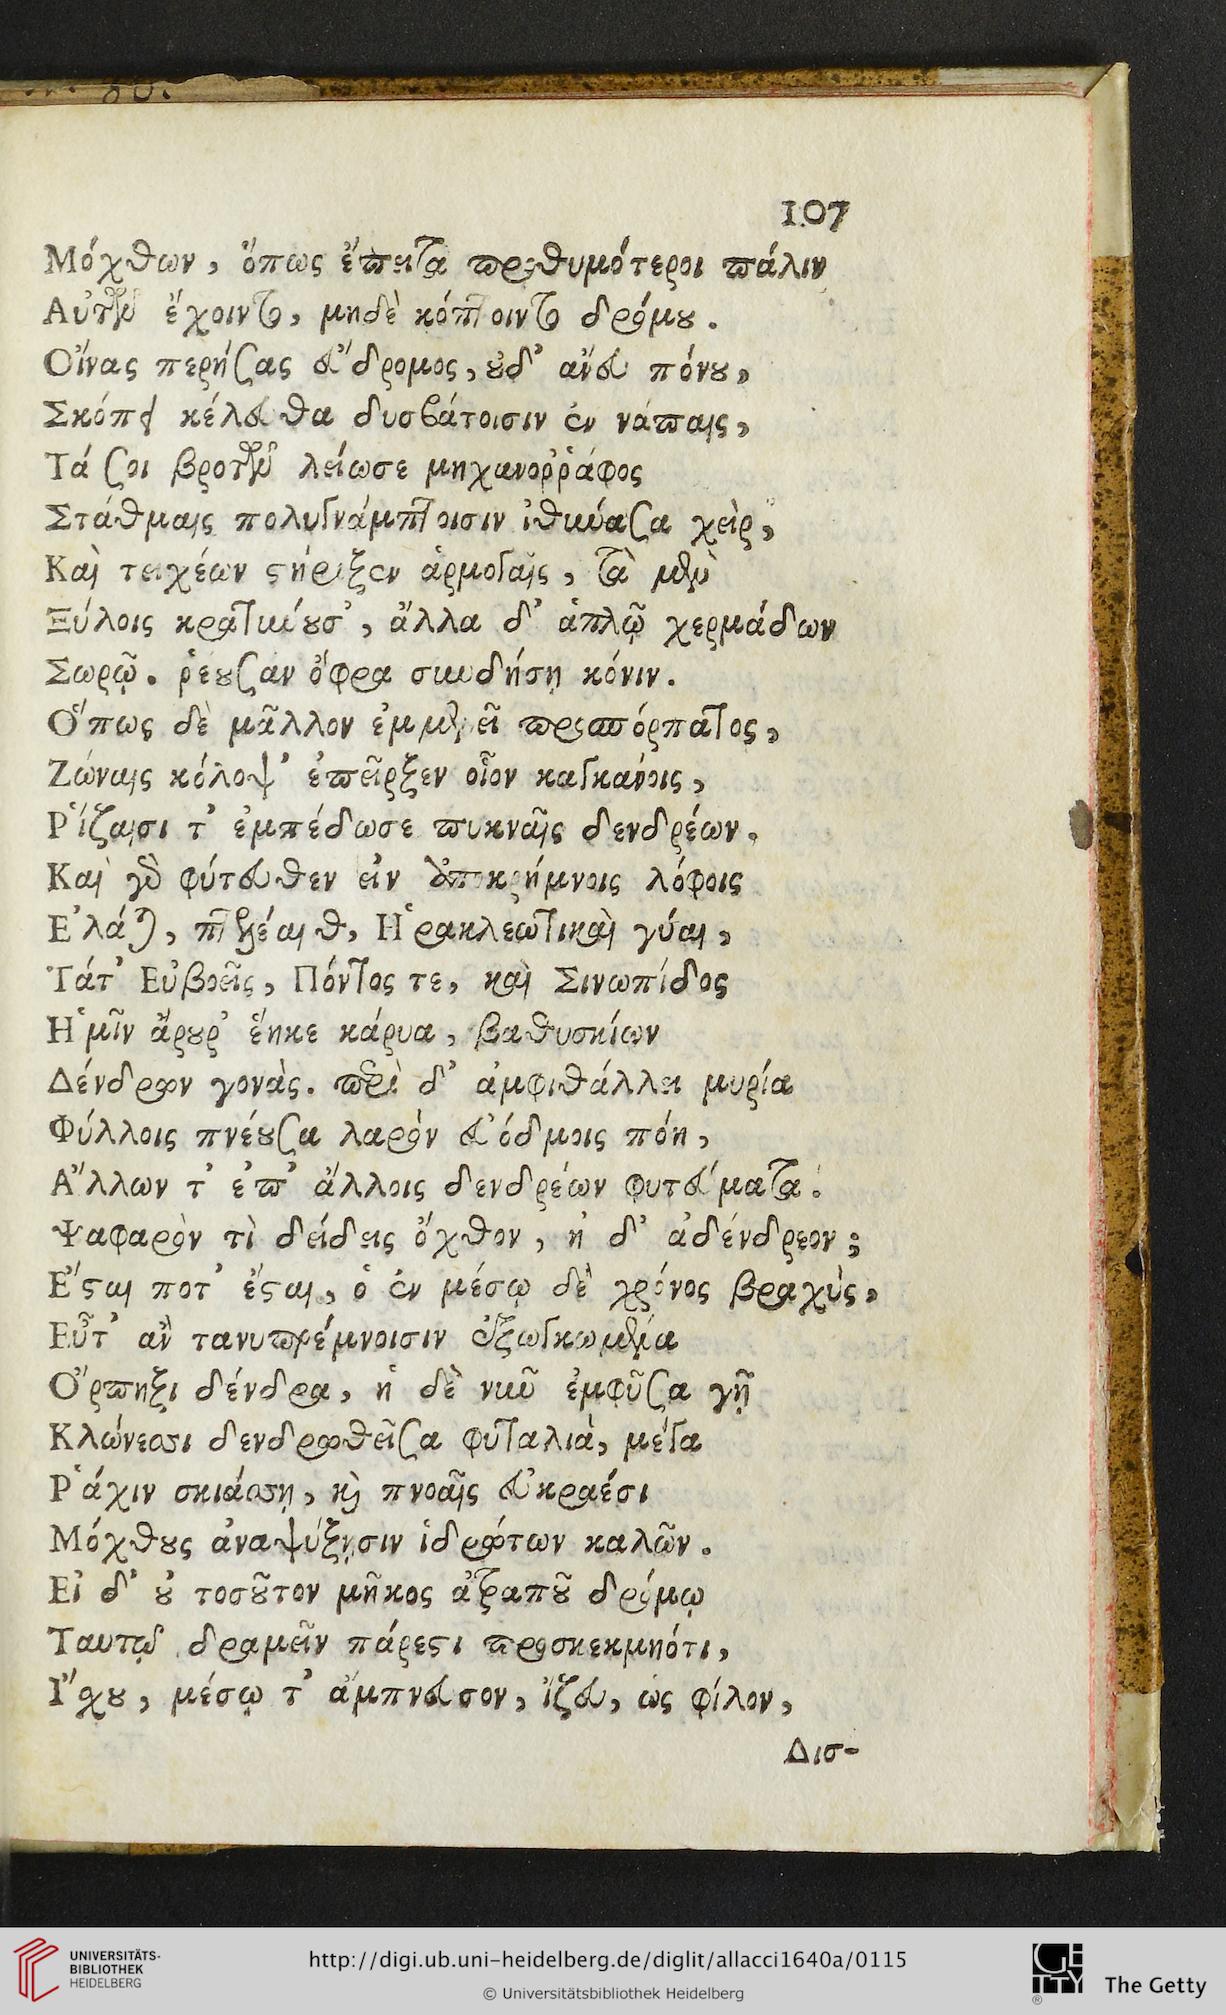 107
Μόχθων, ὅπως ἔπειτα προθυμότεροι πάλιν
Αὐτῶν ἔχοιντο, μηδὲ κόπτοιντο δρόμου.
Οἴνας περήσας εὔδρομος, οὐδ' ἄνευ πόνου,
Σκόπει κέλευθα δυσβάτοισιν ἐν νάπαις,
Τά σοι βροτῶν λείωσε μηχανορράφος
Στάθμαις πολυγνάμπτοισιν ἰθυνάσα χεὶρ,
Καὶ τειχέων στήριξεν ἁρμογαῖς, τὰ μὲν
Ξύλοις κρατυνούσ', ἄλλα δ' ἁπλῷ χερμάδων
Σωρῷ. ῥέουσαν ὄφρα συνδήσῃ κόνιν.
Ὅπως δὲ μᾶλλον ἐμμενεῖ προσπόρπατος,
Ζώναις κόλοψ' ἐπεῖρξεν οἷον καγκάνοις,
Ῥίζαισι τ' ἐμπέδωσε πυκναῖς δενδρέων.
Καὶ γὰρ φύτευθεν εἰν ἀποκρήμνοις λόφοις
Ἐλάται, πτελέαι θ, Ἡρακλεωτικαὶ γύαι,
Τάτ' Εὐβοεῖς, Πόντος τε, καὶ Σινωπίδος
Ἡμῖν ἄρουρ' ἕηκε κάρυα, βαθυσκίων
Δένδρων γονὰς. περὶ δ' ἀμφιθάλλει μυρία
Φύλλοις πνέουσα λαρὸν εὐόδμοις πόη,
Ἄλλων τ' ἐπ' ἄλλοις δενδρέων φυτεύματα.
Ψαφαρὸν τὶ δείδεις ὄχθον, ἠ δ' ἀδένδρεον;
Ἔσται ποτ' ἔσται, ὁ ἐν μέσῳ δὲ χρόνος βραχὺς,
Εὖτ' ἂν τανυπρέμνοισιν ἐξωγκωμένα
Ὄρπηξι δένδρα, ἡ δὲ νῦν ἐμφῦσα γῇ
Κλώνεσσι δενδρωθεῖσα φυταλιὰ, μέγα
Ῥάχιν σκιάσσῃ, καὶ πνοαῖς εὐκραέσι
Μόχθους ἀναψύξῃσιν ἱδρώτων καλῶν.
Εἰ δ' οὐ τοσοῦτον μῆκος ἀτραποῦ δρόμῳ
Ταυτῷ δραμεῖν πάρεστι προσκεκμηότι,
Ἴσχου, μέσῳ τ' ἄμπνευσον, ἵζευ, ὡς φίλον,
Δισ-
UNIVERSITÄTS-
BIBLIOTHEK
HEIDELBERG
http://digi.ub.uni-heidelberg.de/diglit/allacci1640a/0115
© Universitätsbibliothek Heidelberg
GETTY
The Getty